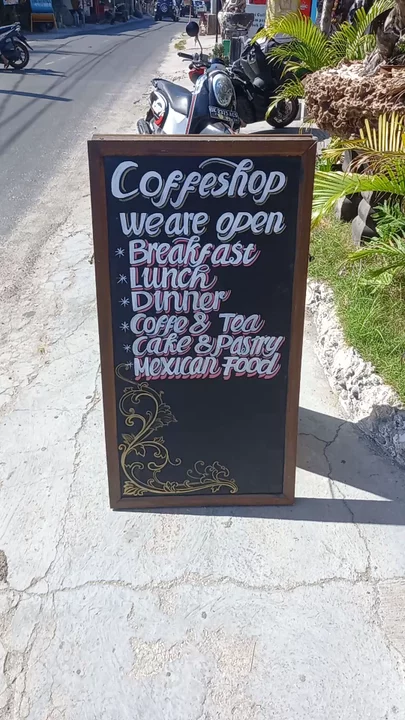 Coffeshop
we are open
* Breakfast
* Lunch
* Dinner
* Coffe & Tea
* Cake & Pastry
* Mexican Food